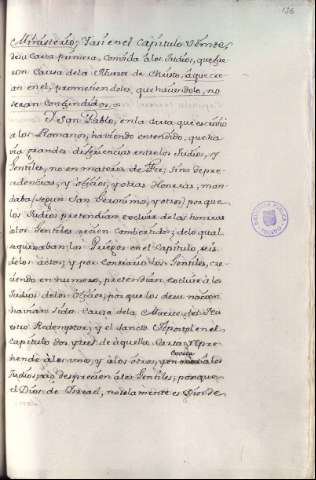 136
Misterio; Y asi en el Capitulo
de su Carta primera, combida à los Judios, que fue
ron Causa de la Muerte de Christo, à que cre
an en el, prometiendoles, que haciendolo, no
seran confundidos.
Y San Pablo, en la carta que escrivió
a los Romanos, haviendo entendido, que ha
via grandes diferencias entre los Judios, y
Gentiles, no en materia de Fee; sino de pre
cedencias, y oficios, y otras Honrras, man
daba, segun San Geronimo, y otros, porque
los Judios pretendian excluir de las honrras
a los Gentiles recien Combertidos; de lo qual
se quexaban los Griegos en el Capitulo, seis
de los actos, y por Contrario los Gentiles, cre
ciendo en numero, pretendian, excluir à los
Judios de los Oficios, porque los de su nacion
havian sido Causa de la Muerte, del Nu
estro Redemptor, y el Sancto Apostol en el
capitulo dos y tres de aquella Carta, repre
hende à los unos, y à los otros, por à los
Judios, que desprecien à los Gentiles; porque
el Dios de Israel, no solamente es Dios de